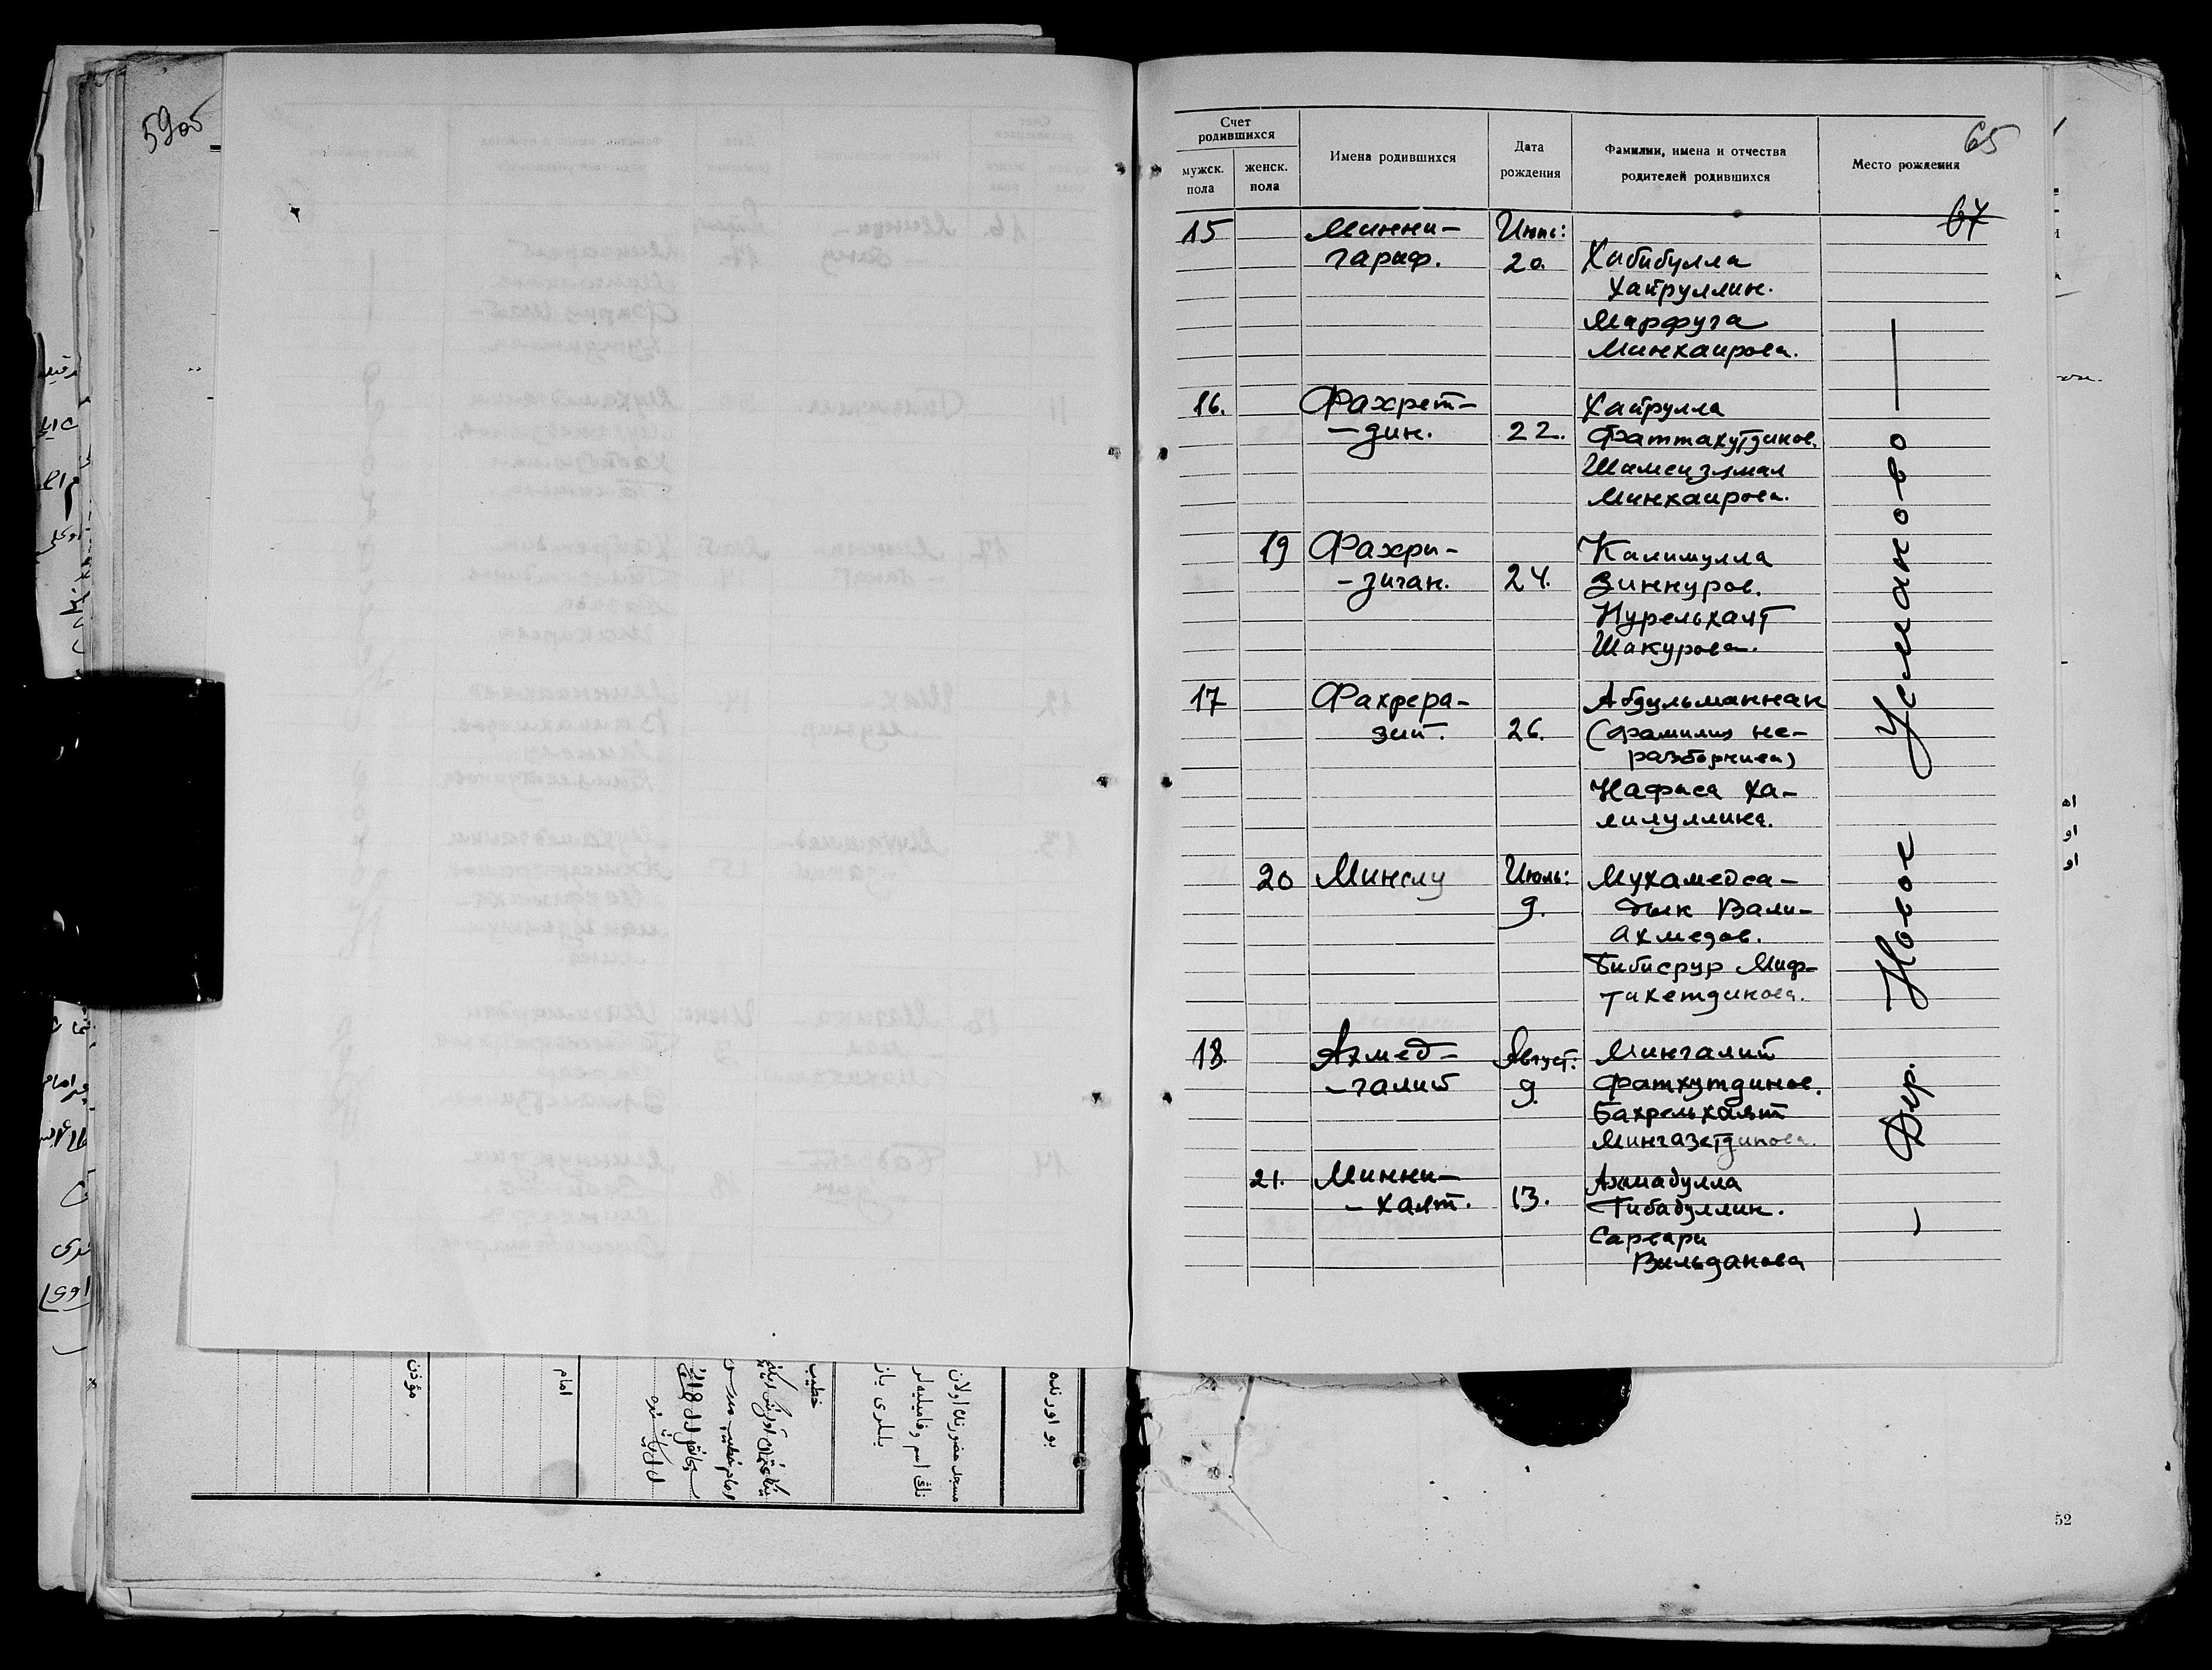 59об
65
67
Счет
родившихся
мужск.
пола
женск.
пола
Имена родившихся
Дата
рождения
Фамилии, имена и отчества
родителей родившихся
Место рождения
15 Минни- Июнь:
гариф. 20. Хабибулла
Хайруллин.
Марфуга
Минхаирова.
16. Фахрет- Хайрулла
-дин. 22. Фаттахутдинов.
Шамсизямал
Минхаирова.
19 Фахри- Калимулла
-зиган. 24. Зиннуров.
Нурельхаят
Шакурова.
17 Фахрера- Абдульманнан
зий. 26. (фамилия не-
разборчива)
Нафиса Ха-
лилуллина.
20 Минслу Июль: Мухамедса-
9. дык Вали-
Ахмедов.
Бибисрур Миф-
тахетдинова.
18. Ахмед- Август: Мингалий
-галий 9. Фатхутдинов.
Бахрельхаят
Мингазетдинова.
21. Минни- Ахмадулла
-хаят. 13. Гибадуллин.
Сарвари
Вильданова
— Дер. Новое Усманово —
بو اورنده
مسجد حضورنده اولان
نڭ اسم و فاميليه لر
خطيب
امام
مؤذن
52